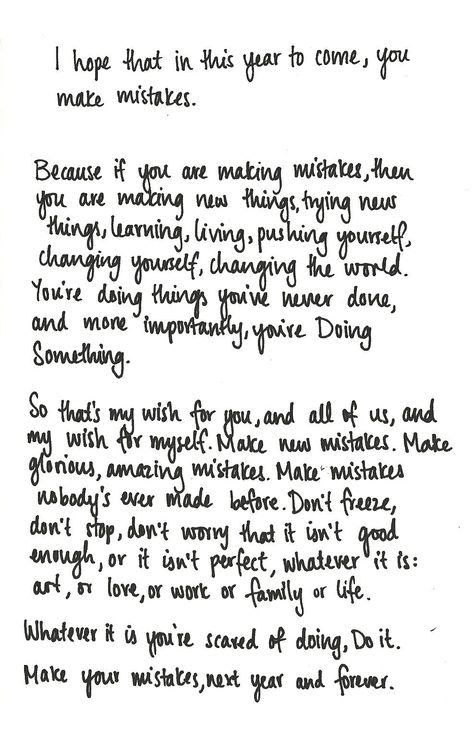 I hope that in this year to come, you
make mistakes.
Because if you are making mistakes, then
you are making new things, trying new
things, learning, living, pushing yourself,
changing yourself, changing the world.
You're doing things you've never done,
and more importantly, you're Doing
Something.
So that's my wish for you, and all of us, and
my wish for myself. Make new mistakes. Make
glorious, amazing mistakes. Make mistakes
nobody's ever made before. Don't freeze,
don't stop, don't worry that it isn't good
enough, or it isn't perfect, whatever it is:
art, or love, or work or family or life.
Whatever it is you're scared of doing, Do it.
Make your mistakes, next year and forever.